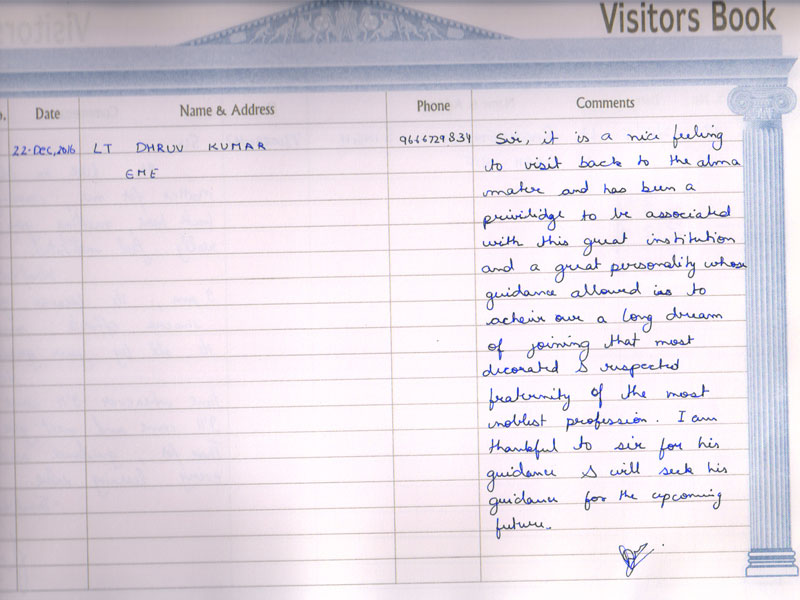 Visitors Book
Date Name & Address Phone Comments
22-Dec,2016 LT DHRUV KUMAR 9666729834 Sir, it is a nice feeling
EME to visit back to the alma
mater and has been a
privilidge to be associated
with this great institution
and a great personality whose
guidance allowed us to
acheiv our a long dream
of joining that most
decorated & respected
fraternity of the most
noblest profession. I am
thankful to sir for his
guidance & will seek his
guidance for the upcoming
future.